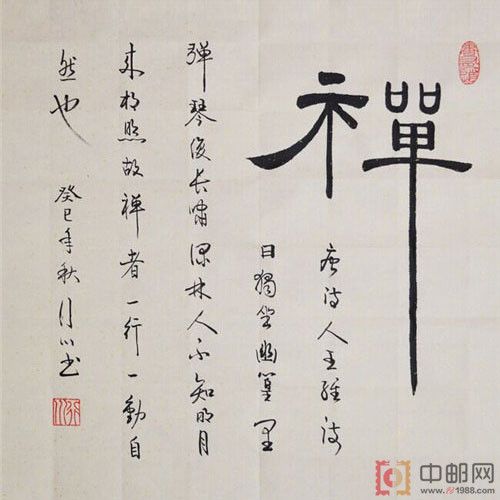 禪
唐诗人王维诗
曰獨坐幽篁里
弹琴復长嘯深林人不知明月
来相照故禅者一行一動自
然也
癸巳年秋
书
中邮网